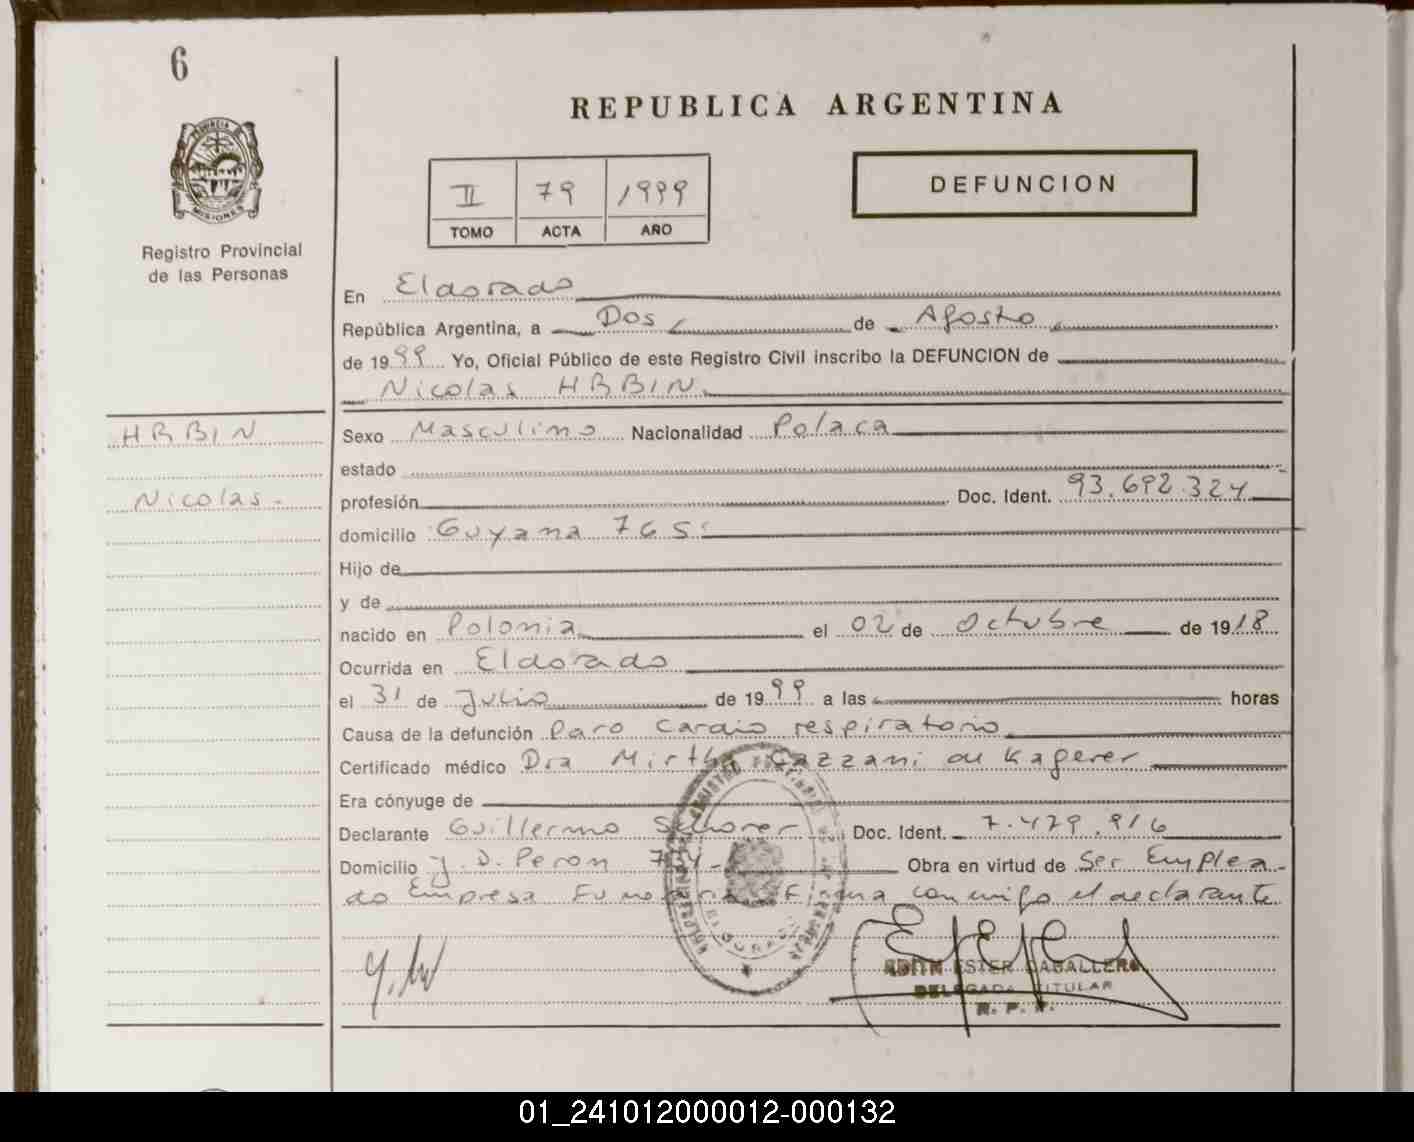 6
PROVINCIA
MISIONES
Registro Provincial
de las Personas
REPUBLICA ARGENTINA
II 79 1999
TOMO ACTA AÑO
DEFUNCION
En Eldorado
República Argentina, a Dos de Agosto
de 1999 Yo, Oficial Público de este Registro Civil inscribo la DEFUNCION de
Nicolas HRBIN
HRBIN
Nicolas.-
Sexo Masculino Nacionalidad Polaca
estado
profesión Doc. Ident. 93.692.324
domicilio Guyana 765
Hijo de
y de
nacido en Polonia el 02 de Octubre de 1918
Ocurrida en Eldorado
el 31 de Julio de 1999 a las horas
Causa de la defunción Paro Cardio respiratorio
Certificado médico Dra Mirtha Cazzani de Kagerer
Era cónyuge de
Declarante Guillermo Doc. Ident. 7.479.916
Domicilio J. D. Peron Obra en virtud de Ser Emplea-
do Empresa Funeraria Firma conmigo el declarante
EDITH ESTER CABALLERO
DELEGADA TITULAR
R. P. P.
01_241012000012-000132